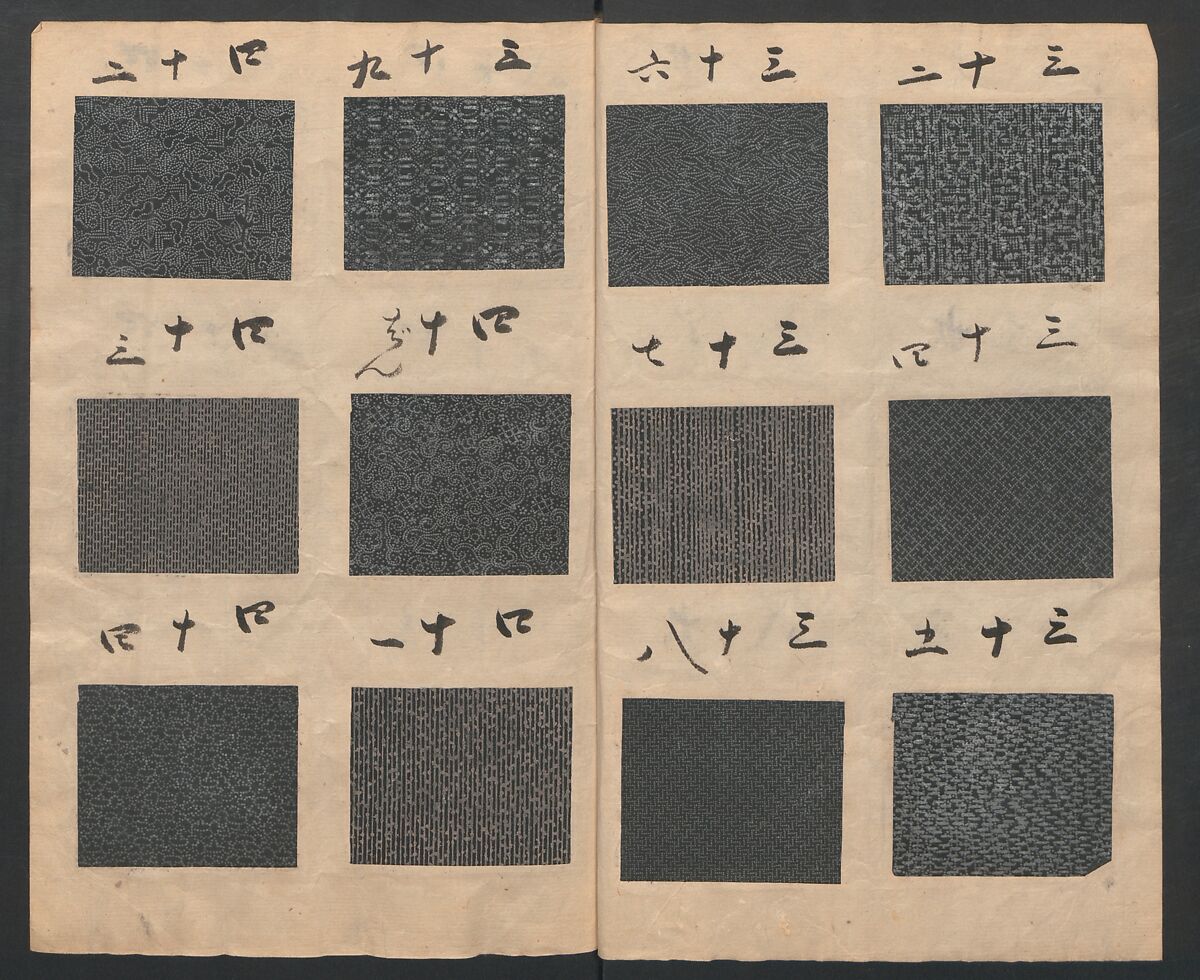 三十二
三十四
三十五
三十六
三十七
三十八
三十九
四十
四十一
四十二
四十三
四十四